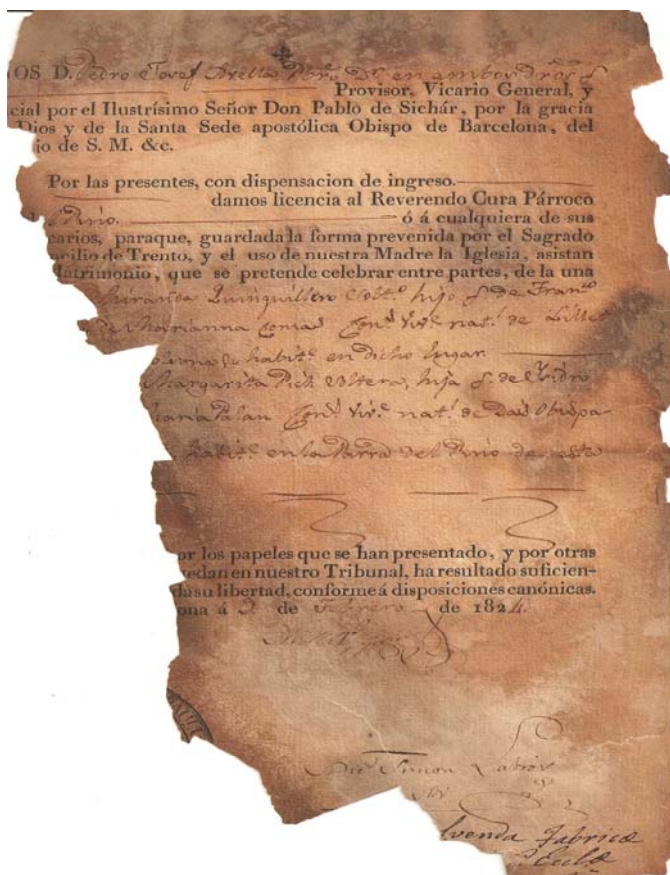 OS D. Pedro Josef Avella Pbro. Dr. en ambos Dros. y
Provisor, Vicario General, y
cial por el Ilustrísimo Señor Don Pablo de Sichár, por la gracia
Dios y de la Santa Sede apostólica Obispo de Barcelona, del
jo de S. M. &c.
Por las presentes, con dispensacion de ingreso.
damos licencia al Reverendo Cura Párroco
Pino. ó á cualquiera de sus
carios, paraque, guardada la forma prevenida por el Sagrado
ncilio de Trento, y el uso de nuestra Madre la Iglesia, asistan
Matrimonio, que se pretende celebrar entre partes, de la una
Quinquillero Solto. hijo l. de Franco.
de Marianna Cons. vivs. natl. de Lillet
habite. en dicho lugar.
Margarita Pich Soltera, hija l. de Isidro
Maria Palau Cons. vivs. natl. de Das Obispa-
habite. en la Parra. del Pino de esta
or los papeles que se han presentado, y por otras
uedan en nuestro Tribunal, ha resultado suficien-
da su libertad, conforme á disposiciones canónicas.
ona á 2 de Febrero de 1824.
Simon
Fabrica